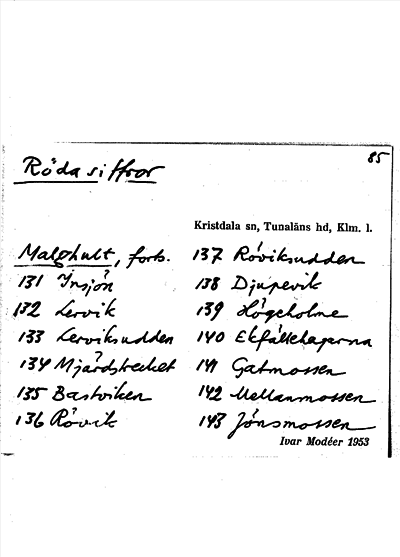 85
Röda siffror
Kristdala sn, Tunaläns hd, Klm. l.
Malghult, forts.
131 Insjön
132 Lervik
133 Lerviksudden
134 Mjärdstrecket
135 Bastviken
136 Rövik
137 Röviksudden
138 Djupevik
139 Högeholme
140 Ekfällehagarna
141 Gatmossen
142 Mellanmossen
143 Jönsmossen
Ivar Modéer 1953